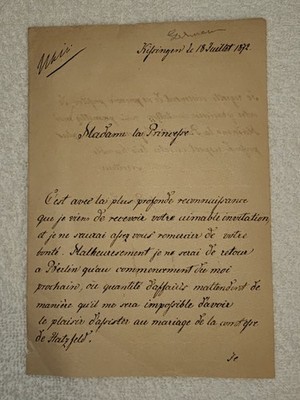 Kissingen le 18 Juillet 1872
Madame la Princesse.
C'est avec la plus profonde reconnaissance
que je vien de recevoir votre aimable invitation,
et je ne saurai assez vous remercier de votre
bonté. Malheureusement je ne serai de retour
a Berlin qu'au commencement du moi
prochain, ou quantité d'affairs m'attendant de
manière qu'il me sera impossible d'avoir
le plaisir d'assister au mariage de la comtesse
de Hatzfeld.
Je